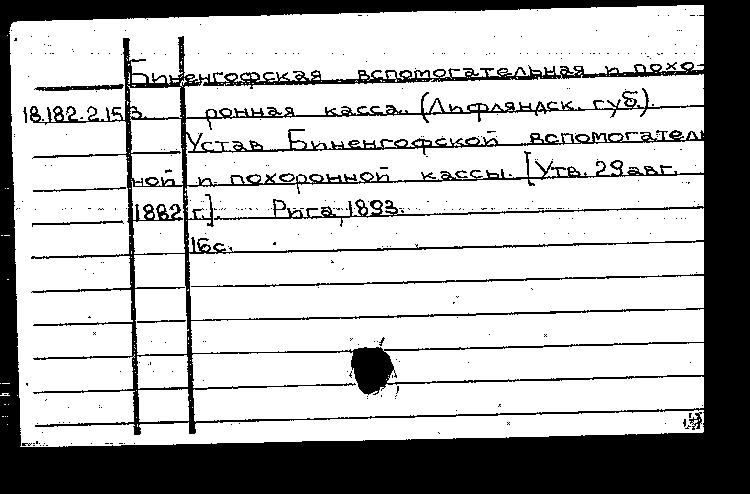 Биненгофская вспомогательная и похо-
18.182.2.153. ронная касса. (Лифляндск. губ).
Устав Биненгофской вспомогатель
ной и похоронной кассы. [Утв. 29 авг.
1882 г.]. Рига, 1893.
16с.